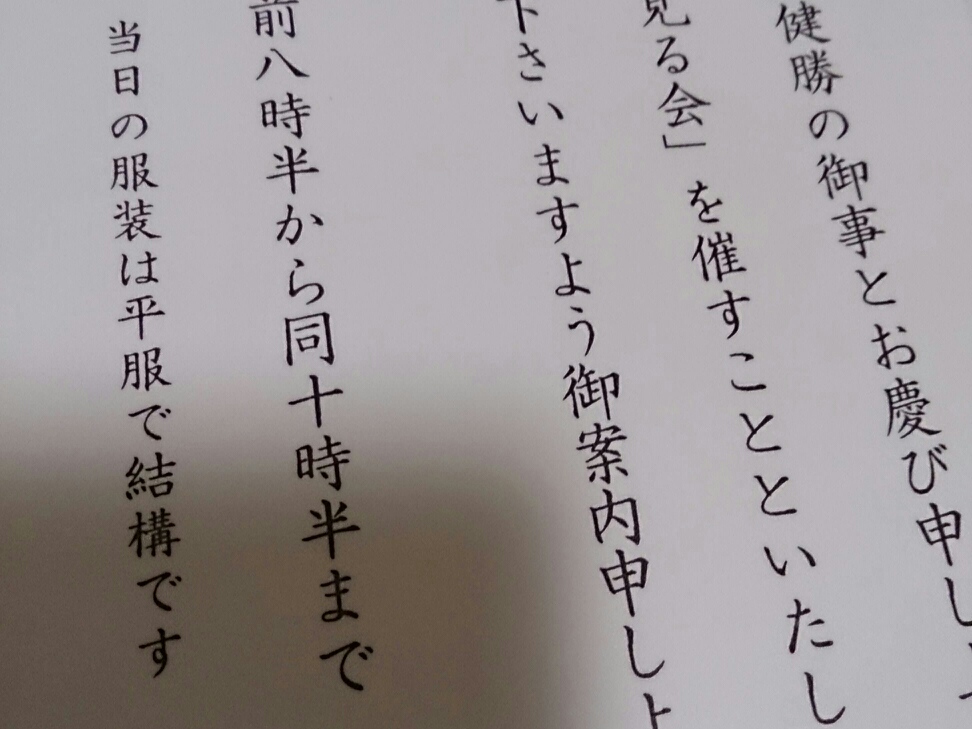 健勝の御事とお慶び申し
見る会」を催すことといたし
下さいますよう御案内申し上
前八時半から同十時半まで
当日の服装は平服で結構です